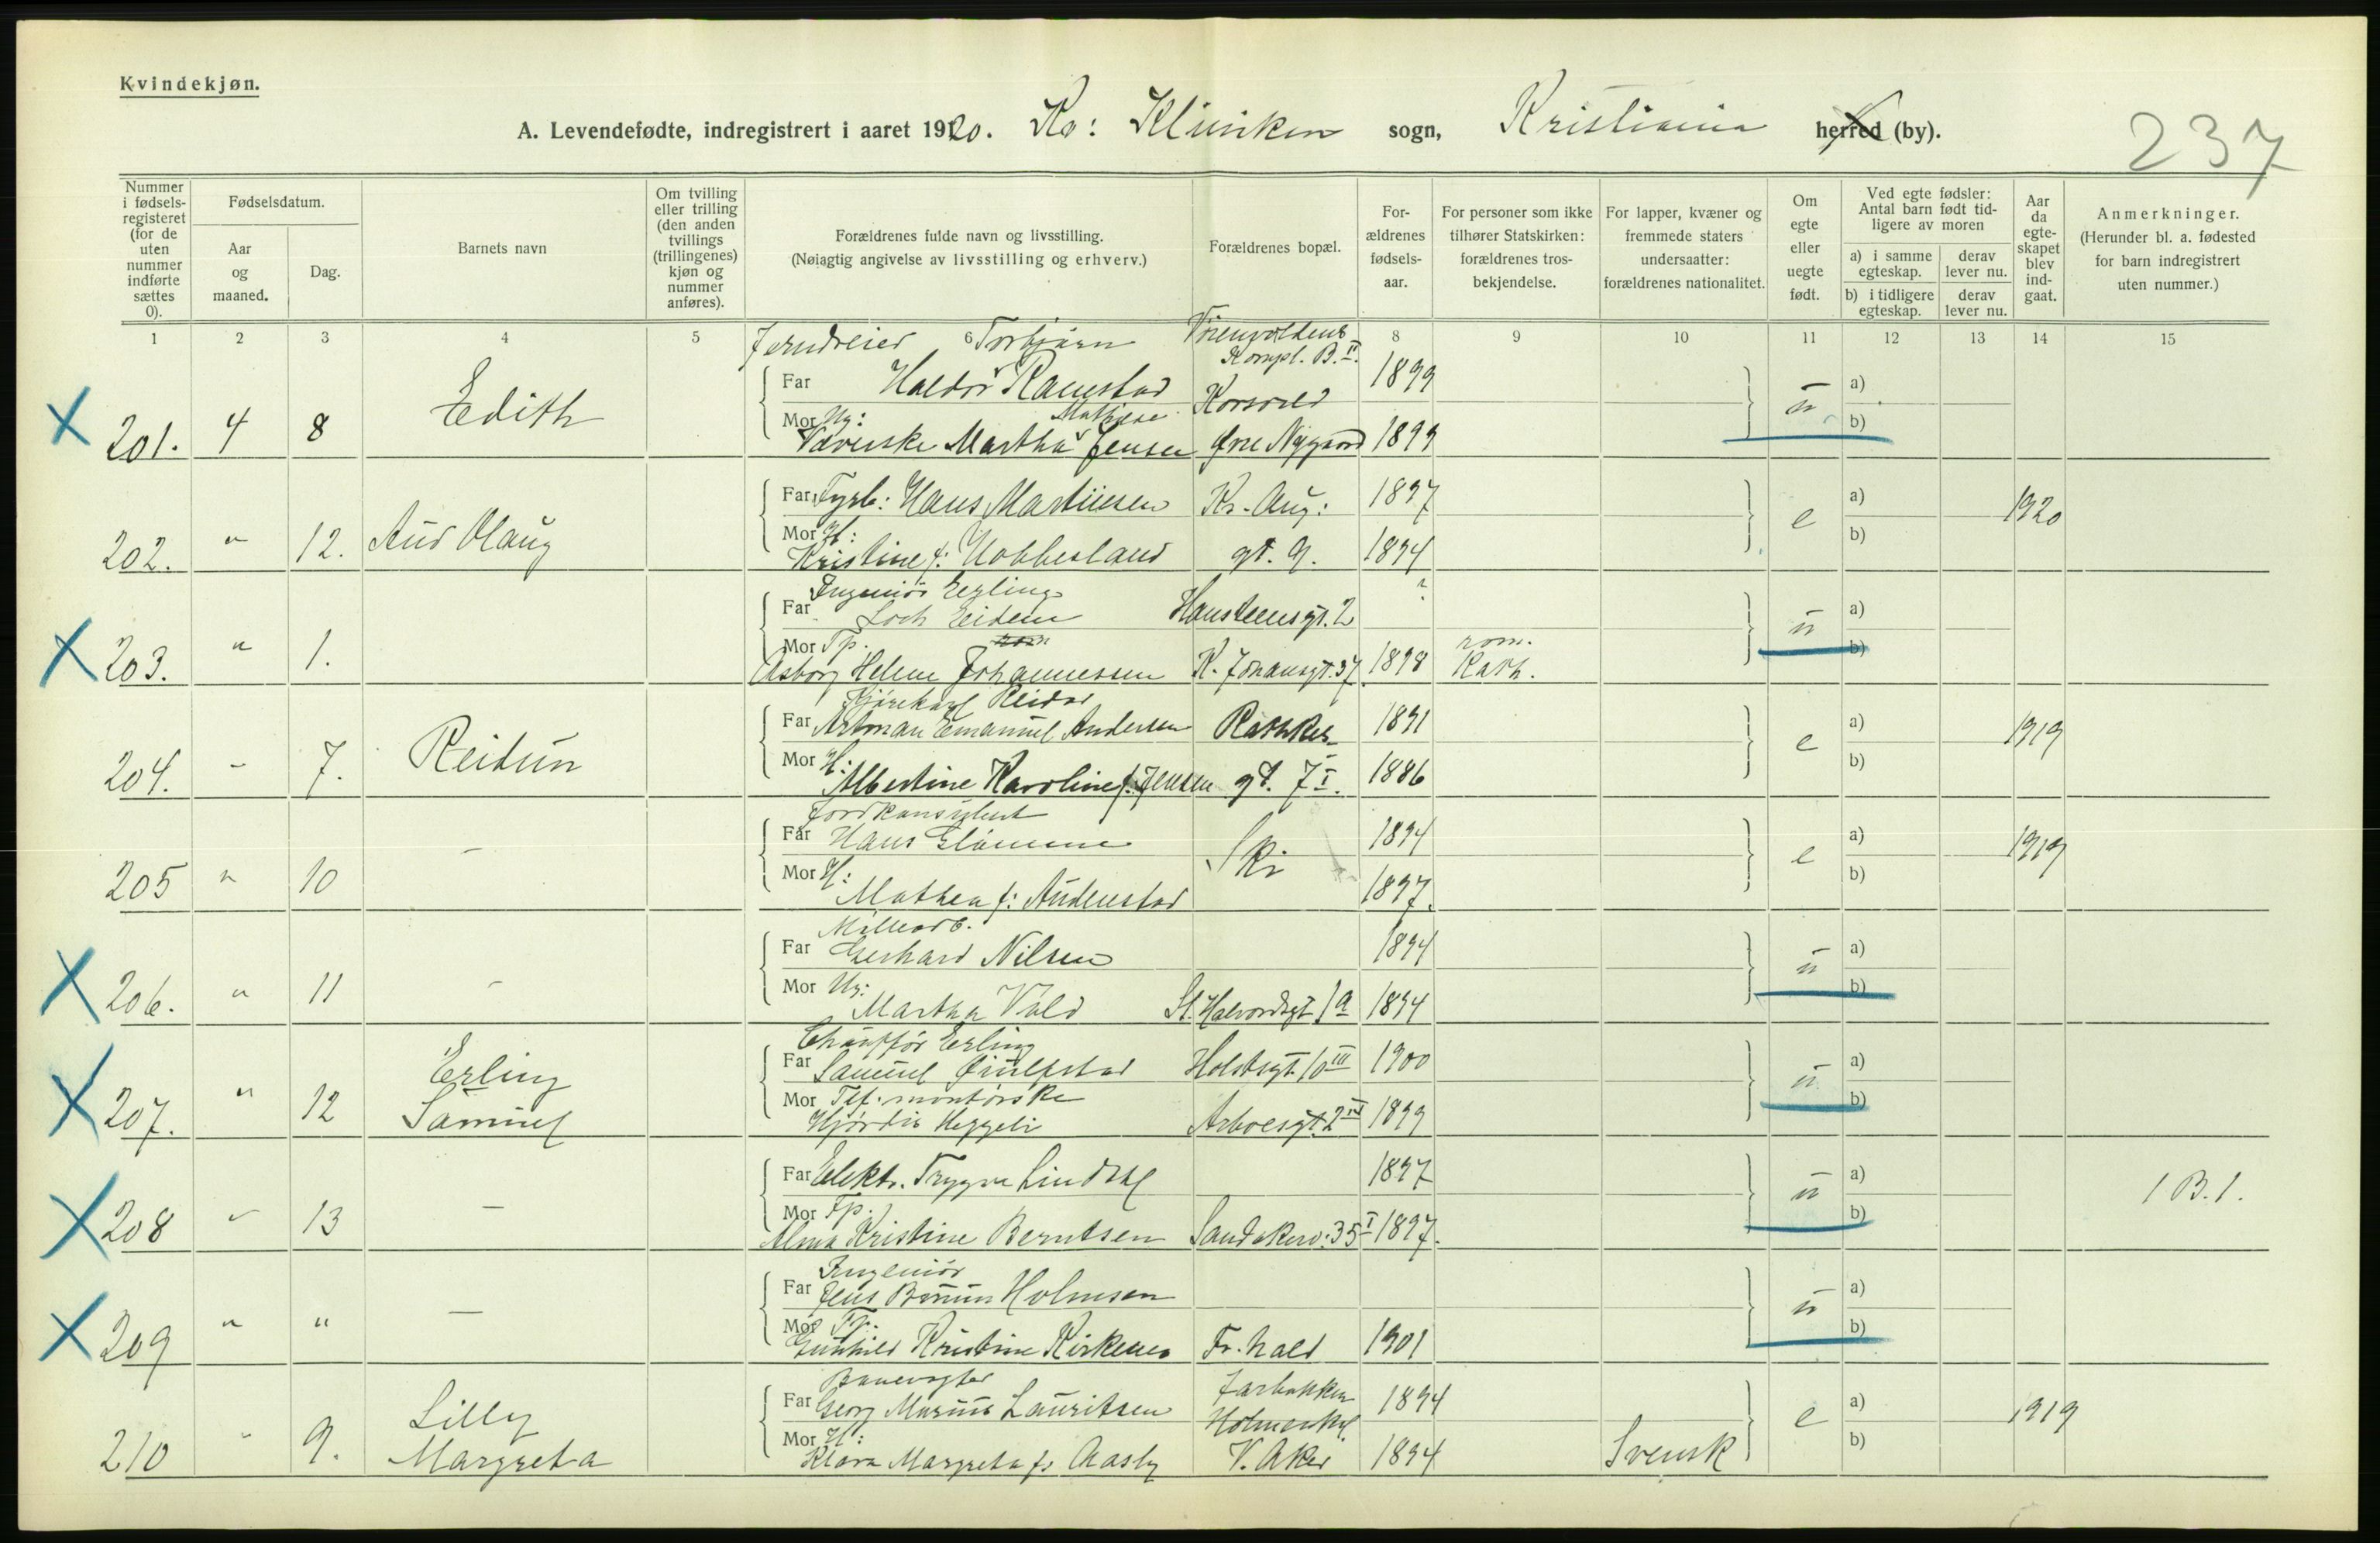 Kvindekjøn.
A. Levendefødte, indregistrert i aaret 1920. Kv: Kliniken sogn, Kristiania herred (by).
237
Nummer i fødsels-registeret (for de uten nummer indførte sættes 0).
Fødselsdatum.
Aar og maaned.
Dag.
Barnets navn
Om tvilling eller trilling (den anden tvillings (trillingenes) kjøn og nummer anføres).
Forældrenes fulde navn og livsstilling.
(Nøiagtig angivelse av livsstilling og erhverv.)
Forældrenes bopæl.
For-ældrenes fødsels-aar.
For personer som ikke tilhører Statskirken: forældrenes tros-bekjendelse.
For lapper, kvæner og fremmede staters undersaatter: forældrenes nationalitet.
Om egte eller uegte født.
Ved egte fødsler: Antal barn født tid-ligere av moren
a) i samme egteskap.
derav lever nu.
b) i tidligere egteskap.
derav lever nu.
Aar da egte-skapet blev ind-gaat.
Anmerkninger.
(Herunder bl. a. fødested for barn indregistrert uten nummer.)
1 2 3 4 5 6 8 9 10 11 12 13 14 15
Jerndreier Torbjørn
Kompl. B. II.
201. 4 8 Edith Far Haldor Ramstad 1899 u a)
Mor Ug: Mathilde Korsvold b)
Væverske Martha Jensen Øvre Nygaard 1899
202. " 12. Aud Olaug Far Fyrb: Hans Martinsen Kr. Aug: 1897 e a) 1920
Mor H: b)
Kristine f: Hobbesland gt. 9. 1894
Ingeniør Erling
203. " 1. Far Loch Eidem Hansteensgt. 2 ? u a)
Mor Tp. rom. b)
Asborg Helene Johannessen K. Johansgt. 37 1898 Kath.
Kjørekarl Reidar
204. " 7. Reidun Far Artman Emanuel Andersen Rathkes 1891 e a) 1919
Mor H: b)
Albertine Karoline f. Jensen gt. 7 I. 1886
Jordkonsulent
205 " 10 - Far Hans Glømme Ski 1894 e a) 1919
Mor H: b)
Mathea f: Audenstad 1897.
206. " 11 - Far Gerhard Nilsen 1894 u a)
Mor Ug: b)
Martha Vold St. Halvordsgt 1 a 1894
Chauffør Erling
207. " 12 Erling Samuel Far Samuel Holstsgt. 10 III 1900 u a)
Mor Tlf. montørske b)
Hjørdis Heggeli Arboesgt. 2 IV 1899
208 " 13 - Far Elektr. Trygve Lindahl 1897 u a) 1 B. 1.
Mor Tp. b)
Alma Kristine Berntsen Sandakerv. 35 I 1897.
Ingeniør
209 " " - Far Jens Holmsen u a)
Mor Tp. b)
Gunhild Kristine Fr. hald 1901
Banevogter
210 " 9. Lilly Margreta Far Georg Marius Lauritsen Jarbakken 1894 e a) 1919
Mor H: Holmenkol b)
Klara Margreta f: Aasly V. Aker 1894 Svensk